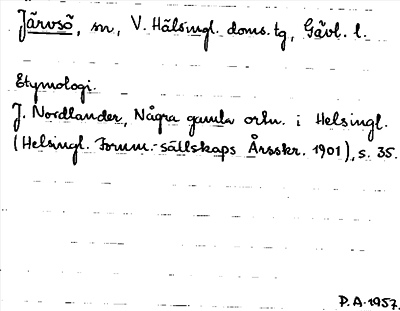 Järvsö, sn, V. Hälsingl. doms. tg, Gävl. l.
Etymologi.
J. Nordlander, Några gamla ortn. i Helsingl.
(Helsingl. Fornm.-sällskaps Årsskr. 1901), s. 35.
P.A. 1957.